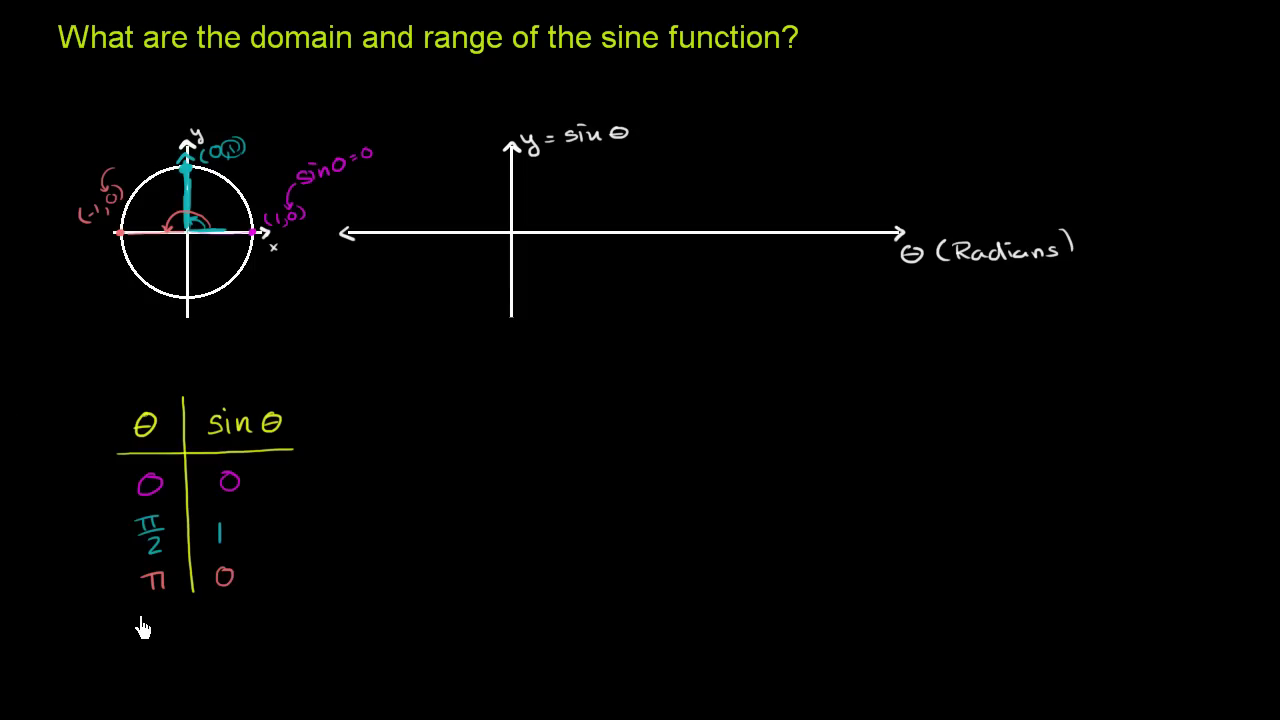 What are the domain and range of the sine function?
y
(0,1)
sin 0 = 0
(-1,0)
(1,0)
x
y = sin θ
θ (Radians)
θ sin θ
0 0
π/2 1
π 0